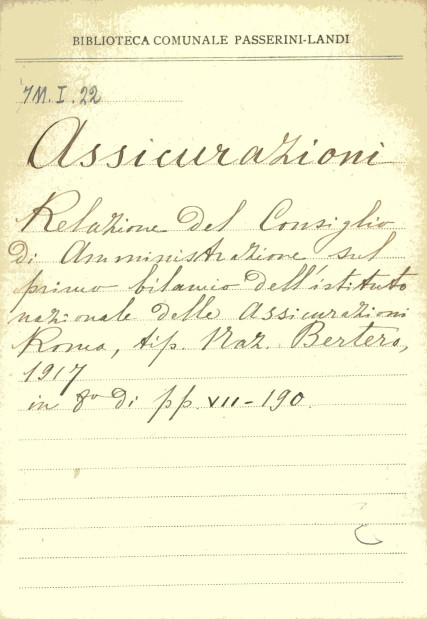 BIBLIOTECA COMUNALE PASSERINI-LANDI
7M.I.22
Assicurazioni
Relazione del Consiglio
di Amministrazione sul
primo bilancio dell'istituto
nazionale delle Assicurazioni
Roma, tip. Naz. Bertero,
1917
in 8º di pp. VII-190.